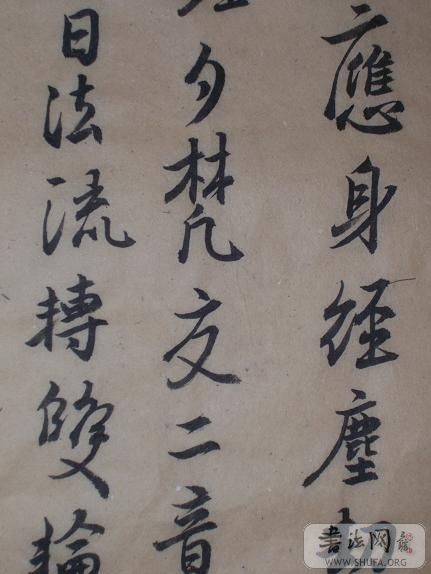 應身經塵
夕梵交二音
日法流轉雙輪
書法网
WWW.SHUFA.ORG